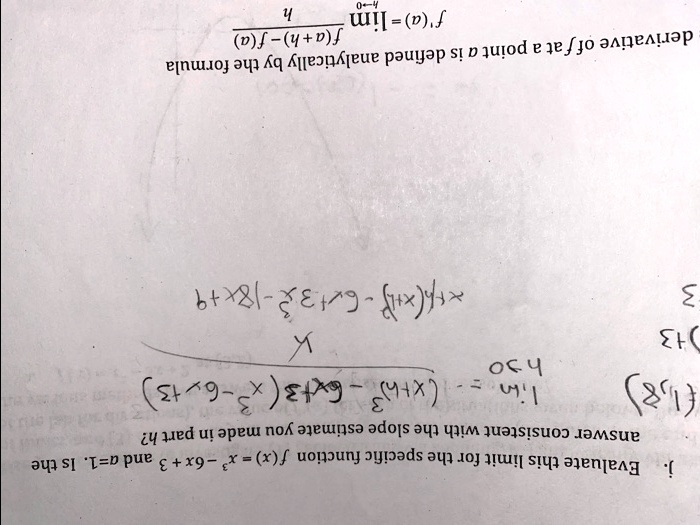 j. Evaluate this limit for the specific function f(x) = x³ – 6x + 3 and a=1. Is the
answer consistent with the slope estimate you made in part h?
(f(1,8)
lim = (x+h)³ - 6x+3 (x³-6x+3)
h→0
h
)+3
3
x+h(x+h)² - 6x+3x³-18x+9
derivative of f at a point a is defined analytically by the formula
f'(a) = lim h→0 f(a+h)–f(a) / h